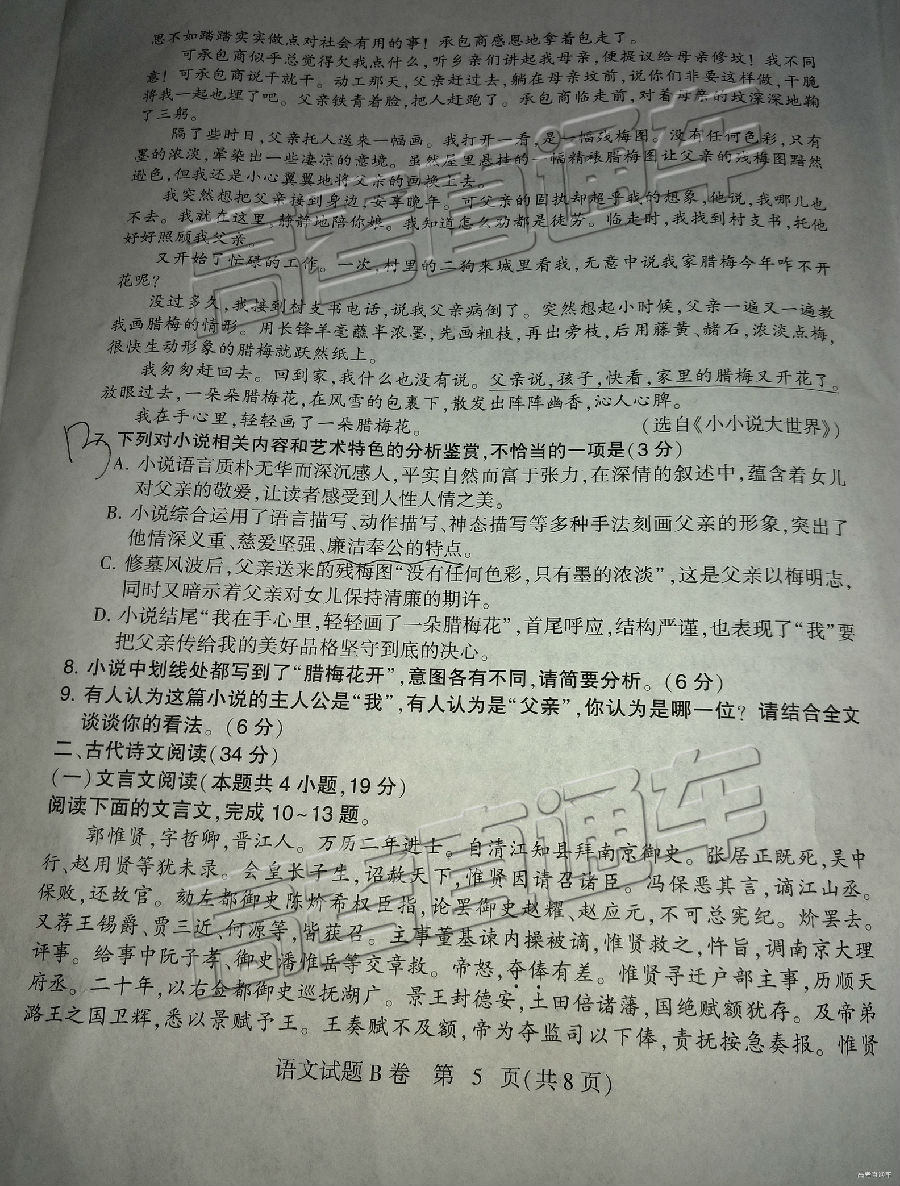 思不如踏踏实实做点对社会有用的事！承包商感恩地拿着包走了。
可承包商似乎总觉得欠我点什么，听乡亲们讲起我母亲，便提议给母亲修坟！我不同
意！可承包商说干就干。动工那天，父亲赶过去，躺在母亲坟前，说你们非要这样做，干脆
将我一起也埋了吧。父亲铁青着脸，把人赶跑了。承包商临走前，对着母亲的坟深深地鞠
了三躬。
隔了些时日，父亲托人送来一幅画。我打开一看，是一幅残梅图。没有任何色彩，只有
墨的浓淡，晕染出一些凄凉的意境。虽然屋里悬挂的一幅精裱腊梅图让父亲的残梅图黯然
逊色，但我还是小心翼翼地将父亲的画换上去。
我突然想把父亲接到身边，安享晚年。可父亲的固执却超乎我的想象，他说，我哪儿也
不去。我就在这里，静静地陪你娘。我知道怎么劝都是徒劳。临走时，我找到村支书，托他
好好照顾我父亲。
又开始了忙碌的工作。一次，村里的二狗来城里看我，无意中说我家腊梅今年咋不开
花呢？
没过多久，我接到村支书电话，说我父亲病倒了。突然想起小时候，父亲一遍又一遍教
我画腊梅的情形。用长锋羊毫蘸半浓墨，先画粗枝，再出旁枝，后用藤黄、赭石，浓淡点梅，
很快生动形象的腊梅就跃然纸上。
我匆匆赶回去。回到家，我什么也没有说。父亲说，孩子，快看，家里的腊梅又开花了。
放眼过去，一朵朵腊梅花，在风雪的包裹下，散发出阵阵幽香，沁人心脾。
我在手心里，轻轻画了一朵腊梅花。 （选自《小小说大世界》）
7. 下列对小说相关内容和艺术特色的分析鉴赏，不恰当的一项是（3分）
A. 小说语言质朴无华而深沉感人，平实自然而富于张力，在深情的叙述中，蕴含着女儿
对父亲的敬爱，让读者感受到人性人情之美。
B. 小说综合运用了语言描写、动作描写、神态描写等多种手法刻画父亲的形象，突出了
他情深义重、慈爱坚强、廉洁奉公的特点。
C. 修墓风波后，父亲送来的残梅图“没有任何色彩，只有墨的浓淡”，这是父亲以梅明志，
同时又暗示着父亲对女儿保持清廉的期许。
D. 小说结尾“我在手心里，轻轻画了一朵腊梅花”，首尾呼应，结构严谨，也表现了“我”要
把父亲传给我的美好品格坚守到底的决心。
8. 小说中划线处都写到了“腊梅花开”，意图各有不同，请简要分析。（6分）
9. 有人认为这篇小说的主人公是“我”，有人认为是“父亲”，你认为是哪一位？请结合全文
谈谈你的看法。（6分）
二、古代诗文阅读（34分）
（一）文言文阅读（本题共4小题，19分）
阅读下面的文言文，完成10~13题。
郭惟贤，字哲卿，晋江人。万历二年进士。自清江知县拜南京御史。张居正既死，吴中
行、赵用贤等犹未录。会皇长子生，诏赦天下，惟贤因请召诸臣。冯保恶其言，谪江山丞。
保败，还故官。劾左都御史陈炌希权臣指，论罢御史赵耀、赵应元，不可总宪纪。炌罢去。
又荐王锡爵、贾三近、何源等，皆获召。主事董基谏内操被谪，惟贤救之，忤旨，调南京大理
评事。给事中阮子孝、御史潘惟岳等交章救。帝怒，夺俸有差。惟贤寻迁户部主事，历顺天
府丞。二十年，以右佥都御史巡抚湖广。景王封德安，土田倍诸藩，国绝赋额犹存。及帝弟
潞王之国卫辉，悉以景赋予王。王奏赋不及额，帝为夺监司以下俸，责抚按急奏报。惟贤
语文试题B卷 第 5 页（共8页）
高考直通车
高考直通车
高考直通车